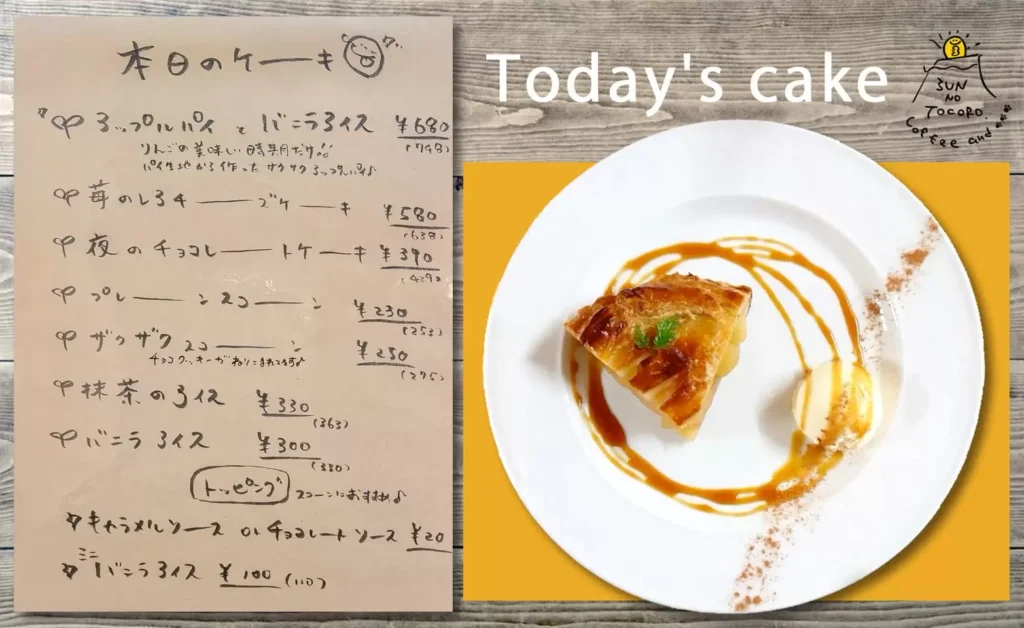 本日のケーキ
アップルパイとバニラアイス ¥680
(748)
りんごの美味しい時期です!!
パイ生地から作ったサクサクアップルパイ♪
苺のレアチーズケーキ ¥580
(638)
夜のチョコレートケーキ ¥390
(429)
プレーンスコーン ¥230
(253)
ザクザクスコーン ¥250
チョコクッキーがねりこまれてます♪
(275)
抹茶のアイス ¥330
(363)
バニラアイス ¥300
(330)
トッピング スコーンにおすすめ♪
キャラメルソース or チョコレートソース ¥20
ミニバニラアイス ¥100 (110)
Today's cake
SUN
NO
TOCORO.
Coffee and